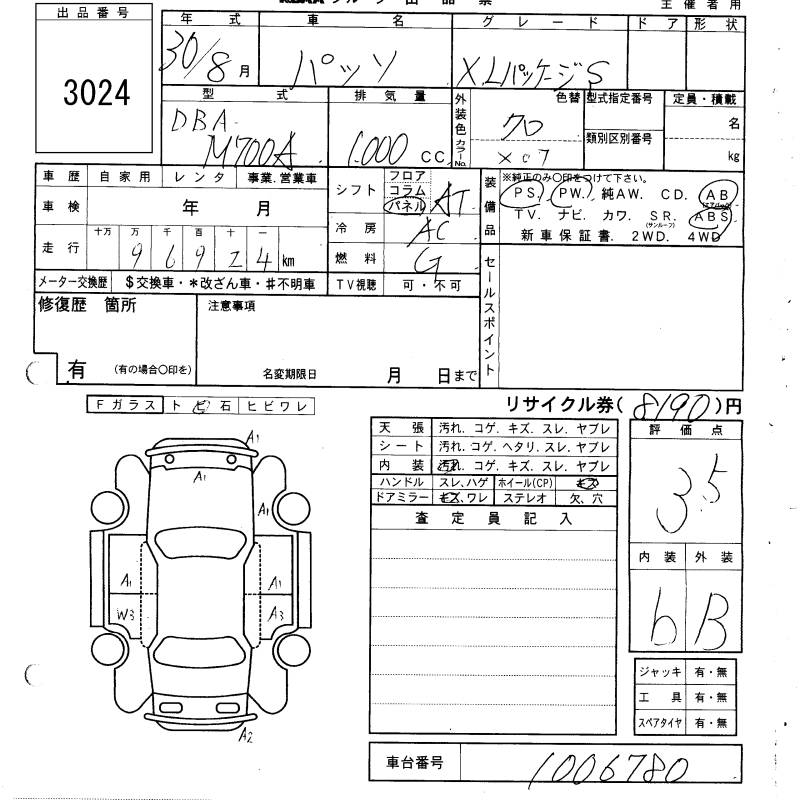 出品番号
3024
主催者用
年式 車名 グレード ドア 形状
30/8月 パッソ X.Lパッケージ S
型式 排気量 外装色 カラーNo. 色替 型式指定番号 定員・積載
DBA-M700A 1.000 CC クロ X07 類別区別番号 名 kg
車歴 自家用 レンタ 事業.営業車
シフト フロア コラム パネル AT
装備品 ※純正のみ○印をつけて下さい。
PS. PW. 純AW. CD. AB (エアバック)
TV. ナビ. カワ. SR. (サンルーフ) ABS
新車保証書. 2WD. 4WD
車検 年 月
冷房 AC
走行 十万 万 千 百 十 一
96924 km
燃料 G
メーター交換歴 $交換車・*改ざん車・#不明車
TV視聴 可・不可
セールスポイント
修復歴 箇所
注意事項
有 (有の場合○印を)
名変期限日 月 日まで
リサイクル券(8190)円
Fガラス トビ石 ヒビワレ
天張 汚れ. コゲ. キズ. スレ. ヤブレ
シート 汚れ. コゲ. ヘタリ. スレ. ヤブレ
内装 汚れ. コゲ. キズ. スレ. ヤブレ
ハンドル スレ,ハゲ ホイール(CP) キズ
ドアミラー キズ,ワレ ステレオ 欠、穴
査定員記入
評価点
3.5
内装 外装
b B
A1
A1
A1
A1 A1
W3 A3
A2
ジャッキ 有・無
工具 有・無
スペアタイヤ 有・無
車台番号 1006780